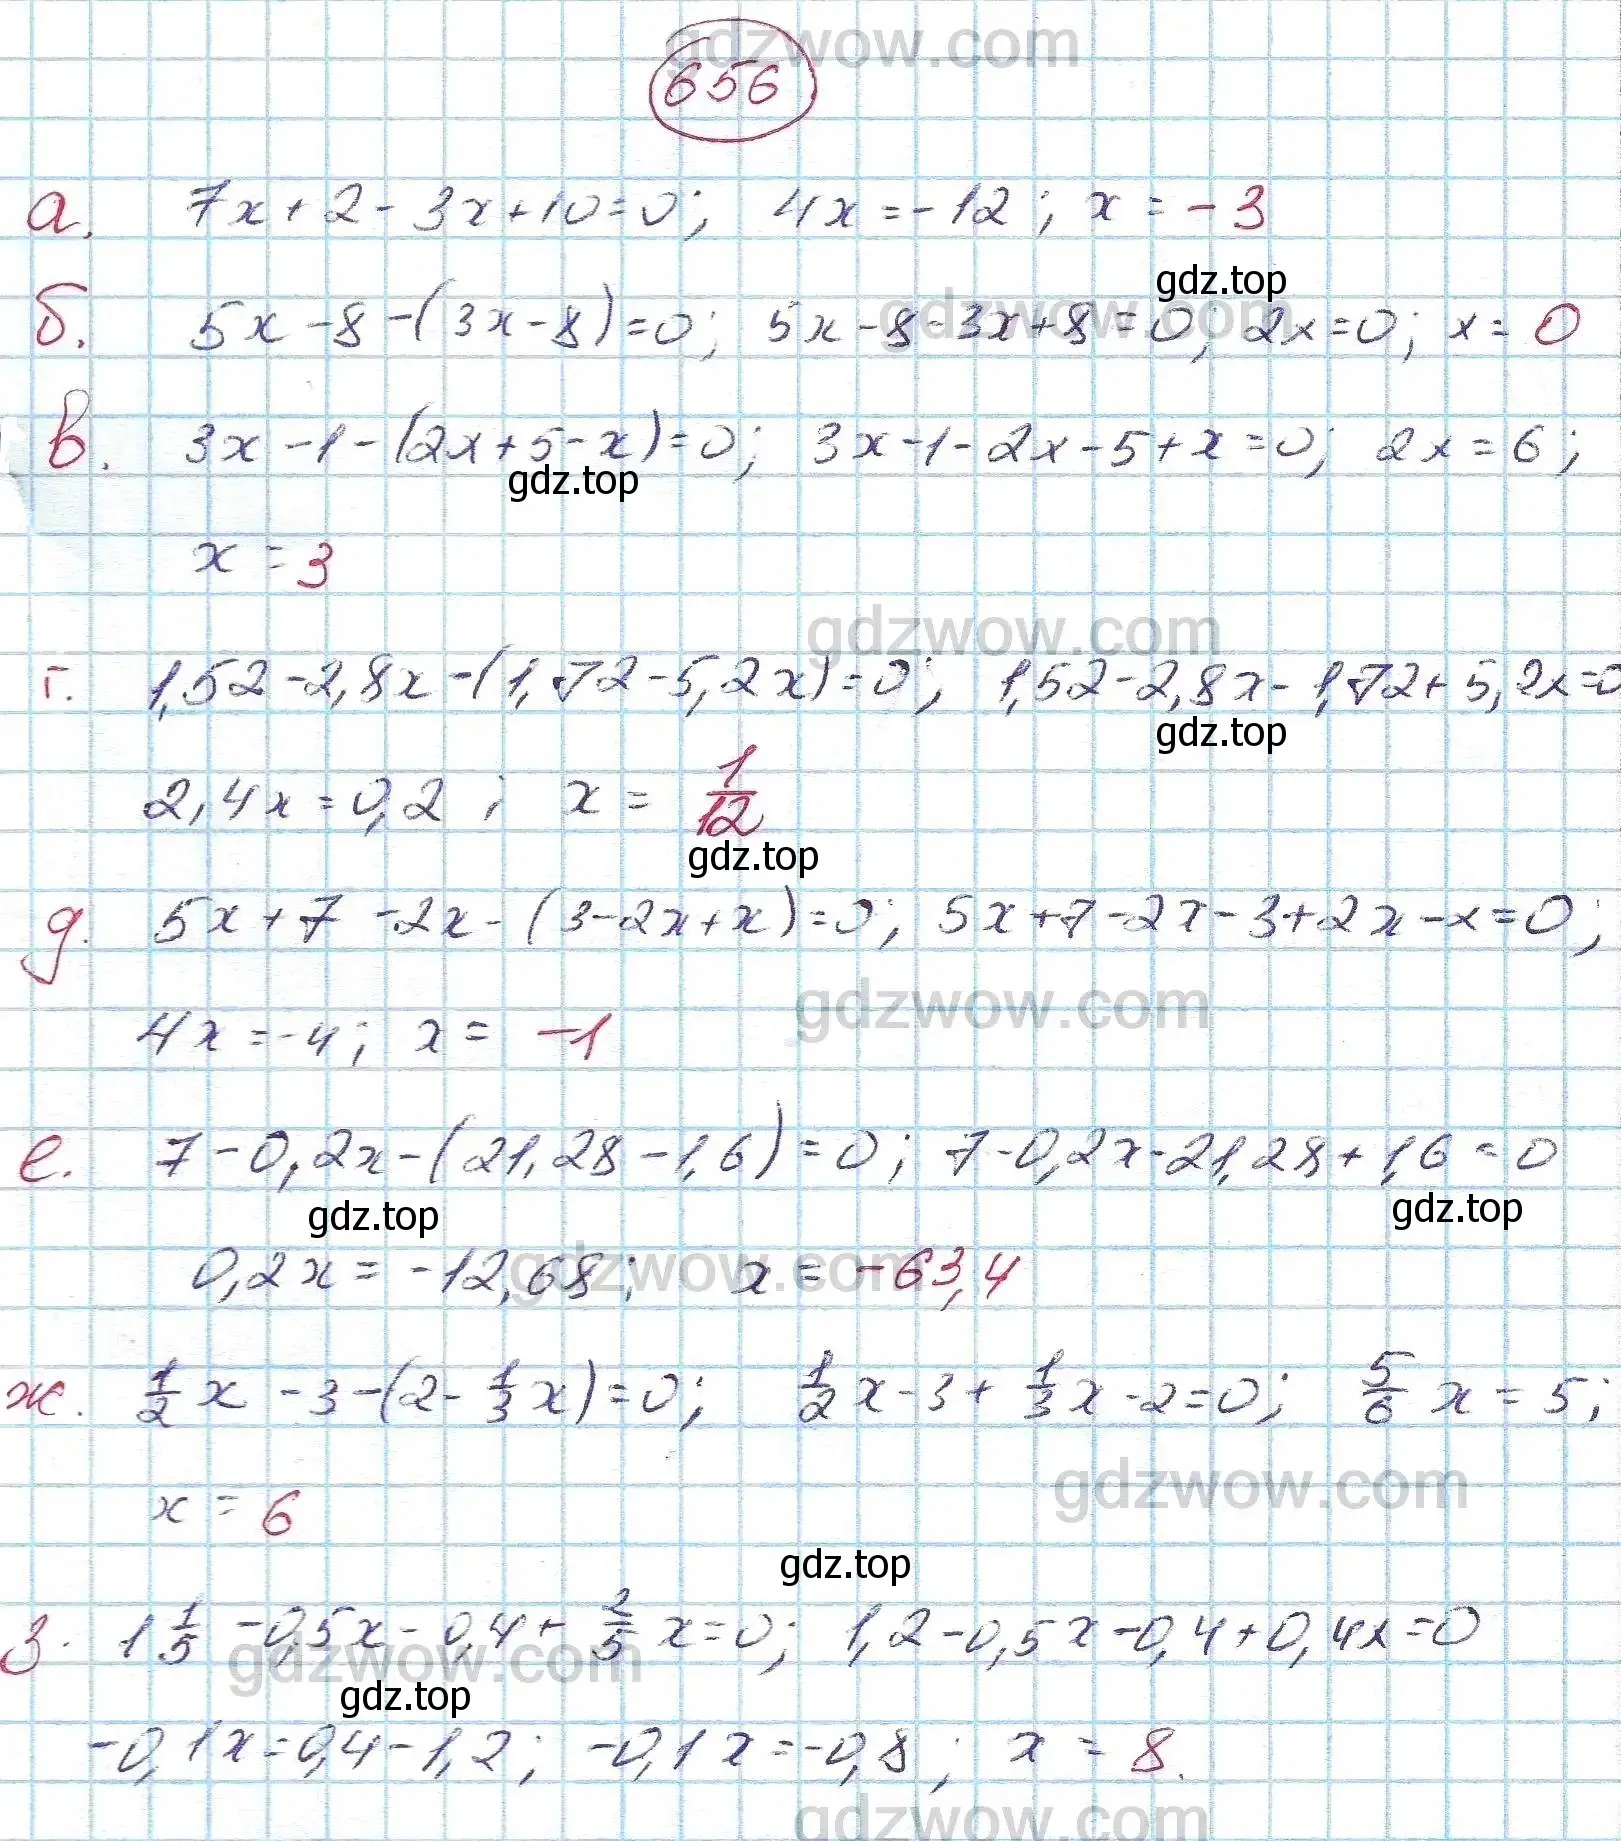 gdzwow.com
656
а. 7x+2-3x+10=0; 4x=-12; x=-3
gdz.top
gdzwow.com
б. 5x-8-(3x-8)=0; 5x-8-3x+8=0; 2x=0; x=0
в. 3x-1-(2x+5-x)=0; 3x-1-2x-5+x=0; 2x=6;
gdz.top
x=3
gdzwow.com
г. 1,52-2,8x-(1,72-5,2x)=0; 1,52-2,8x-1,72+5,2x=0
gdz.top
2,4x=0,2; x=1/12
gdz.top
д. 5x+7-2x-(3-2x+x)=0; 5x+7-2x-3+2x-x=0;
gdzwow.com
4x=-4; x=-1
е. 7-0,2x-(21,28-1,6)=0; 7-0,2x-21,28+1,6=0
gdz.top gdz.top
gdzwow.com
0,2x=-12,68; x=-63,4
ж. 1/2x-3-(2-1/3x)=0; 1/2x-3+1/3x-2=0; 5/6x=5;
gdzwow.com
x=6
gdz.top
з. 1 1/5-0,5x-0,4+2/5x=0; 1,2-0,5x-0,4+0,4x=0
gdzwow.com
gdz.top
-0,1x=0,4-1,2; -0,1x=-0,8; x=8.
gdzwow.com